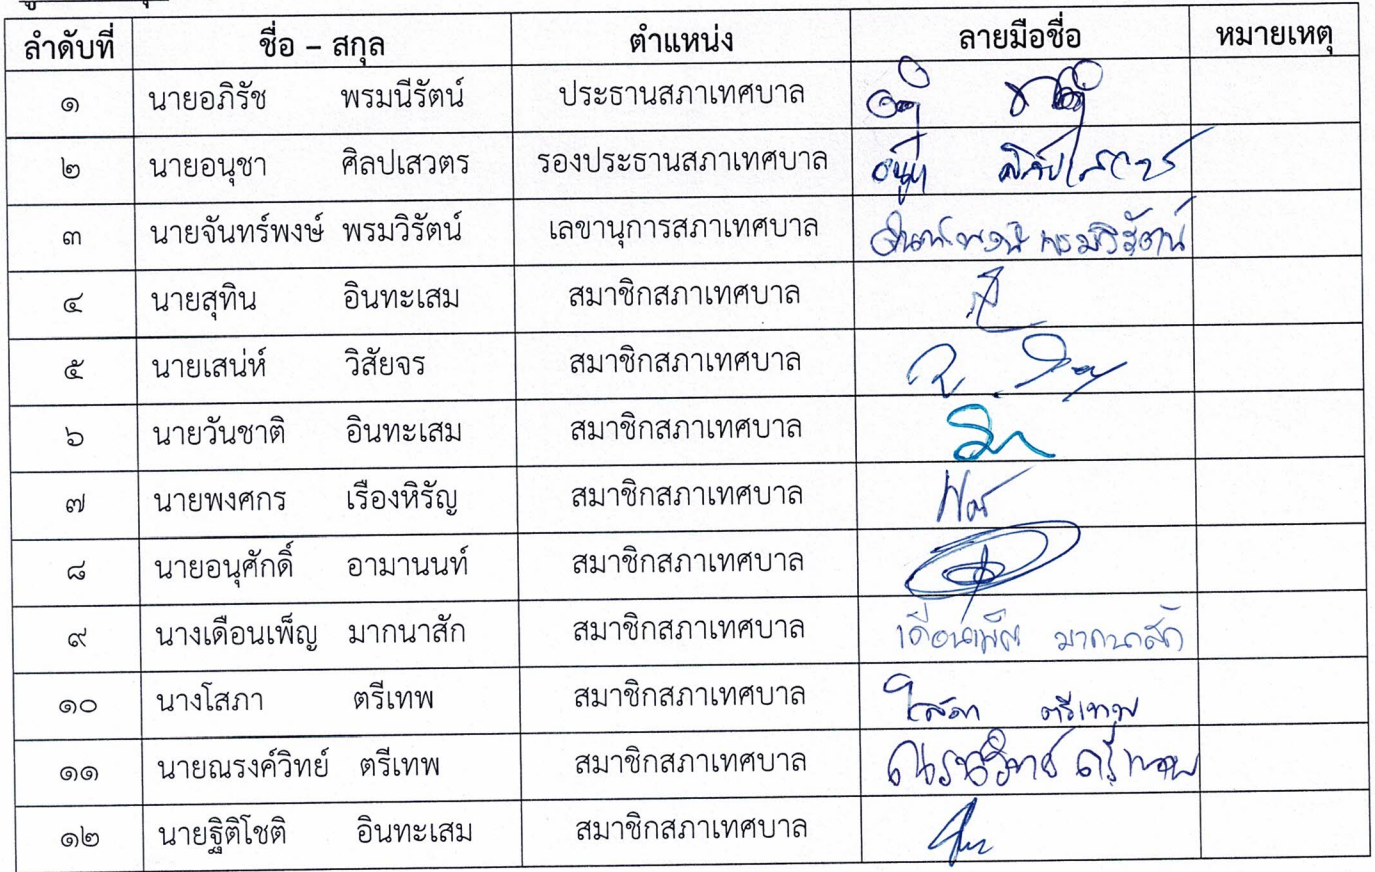 ลำดับที่ ชื่อ – สกุล ตำแหน่ง ลายมือชื่อ หมายเหตุ
๑ นายอภิรัช พรมนีรัตน์ ประธานสภาเทศบาล
๒ นายอนุชา ศิลปเสวตร รองประธานสภาเทศบาล
๓ นายจันทร์พงษ์ พรมวิรัตน์ เลขานุการสภาเทศบาล จันทร์พงษ์ พรมวิรัตน์
๔ นายสุทิน อินทะเสม สมาชิกสภาเทศบาล
๕ นายเสน่ห์ วิสัยจร สมาชิกสภาเทศบาล
๖ นายวันชาติ อินทะเสม สมาชิกสภาเทศบาล
๗ นายพงศกร เรืองหิรัญ สมาชิกสภาเทศบาล
๘ นายอนุศักดิ์ อามานนท์ สมาชิกสภาเทศบาล
๙ นางเดือนเพ็ญ มากนาสัก สมาชิกสภาเทศบาล เดือนเพ็ญ มากนาสัก
๑๐ นางโสภา ตรีเทพ สมาชิกสภาเทศบาล โสภา ตรีเทพ
๑๑ นายณรงค์วิทย์ ตรีเทพ สมาชิกสภาเทศบาล ณรงค์วิทย์ ตรีเทพ
๑๒ นายฐิติโชติ อินทะเสม สมาชิกสภาเทศบาล